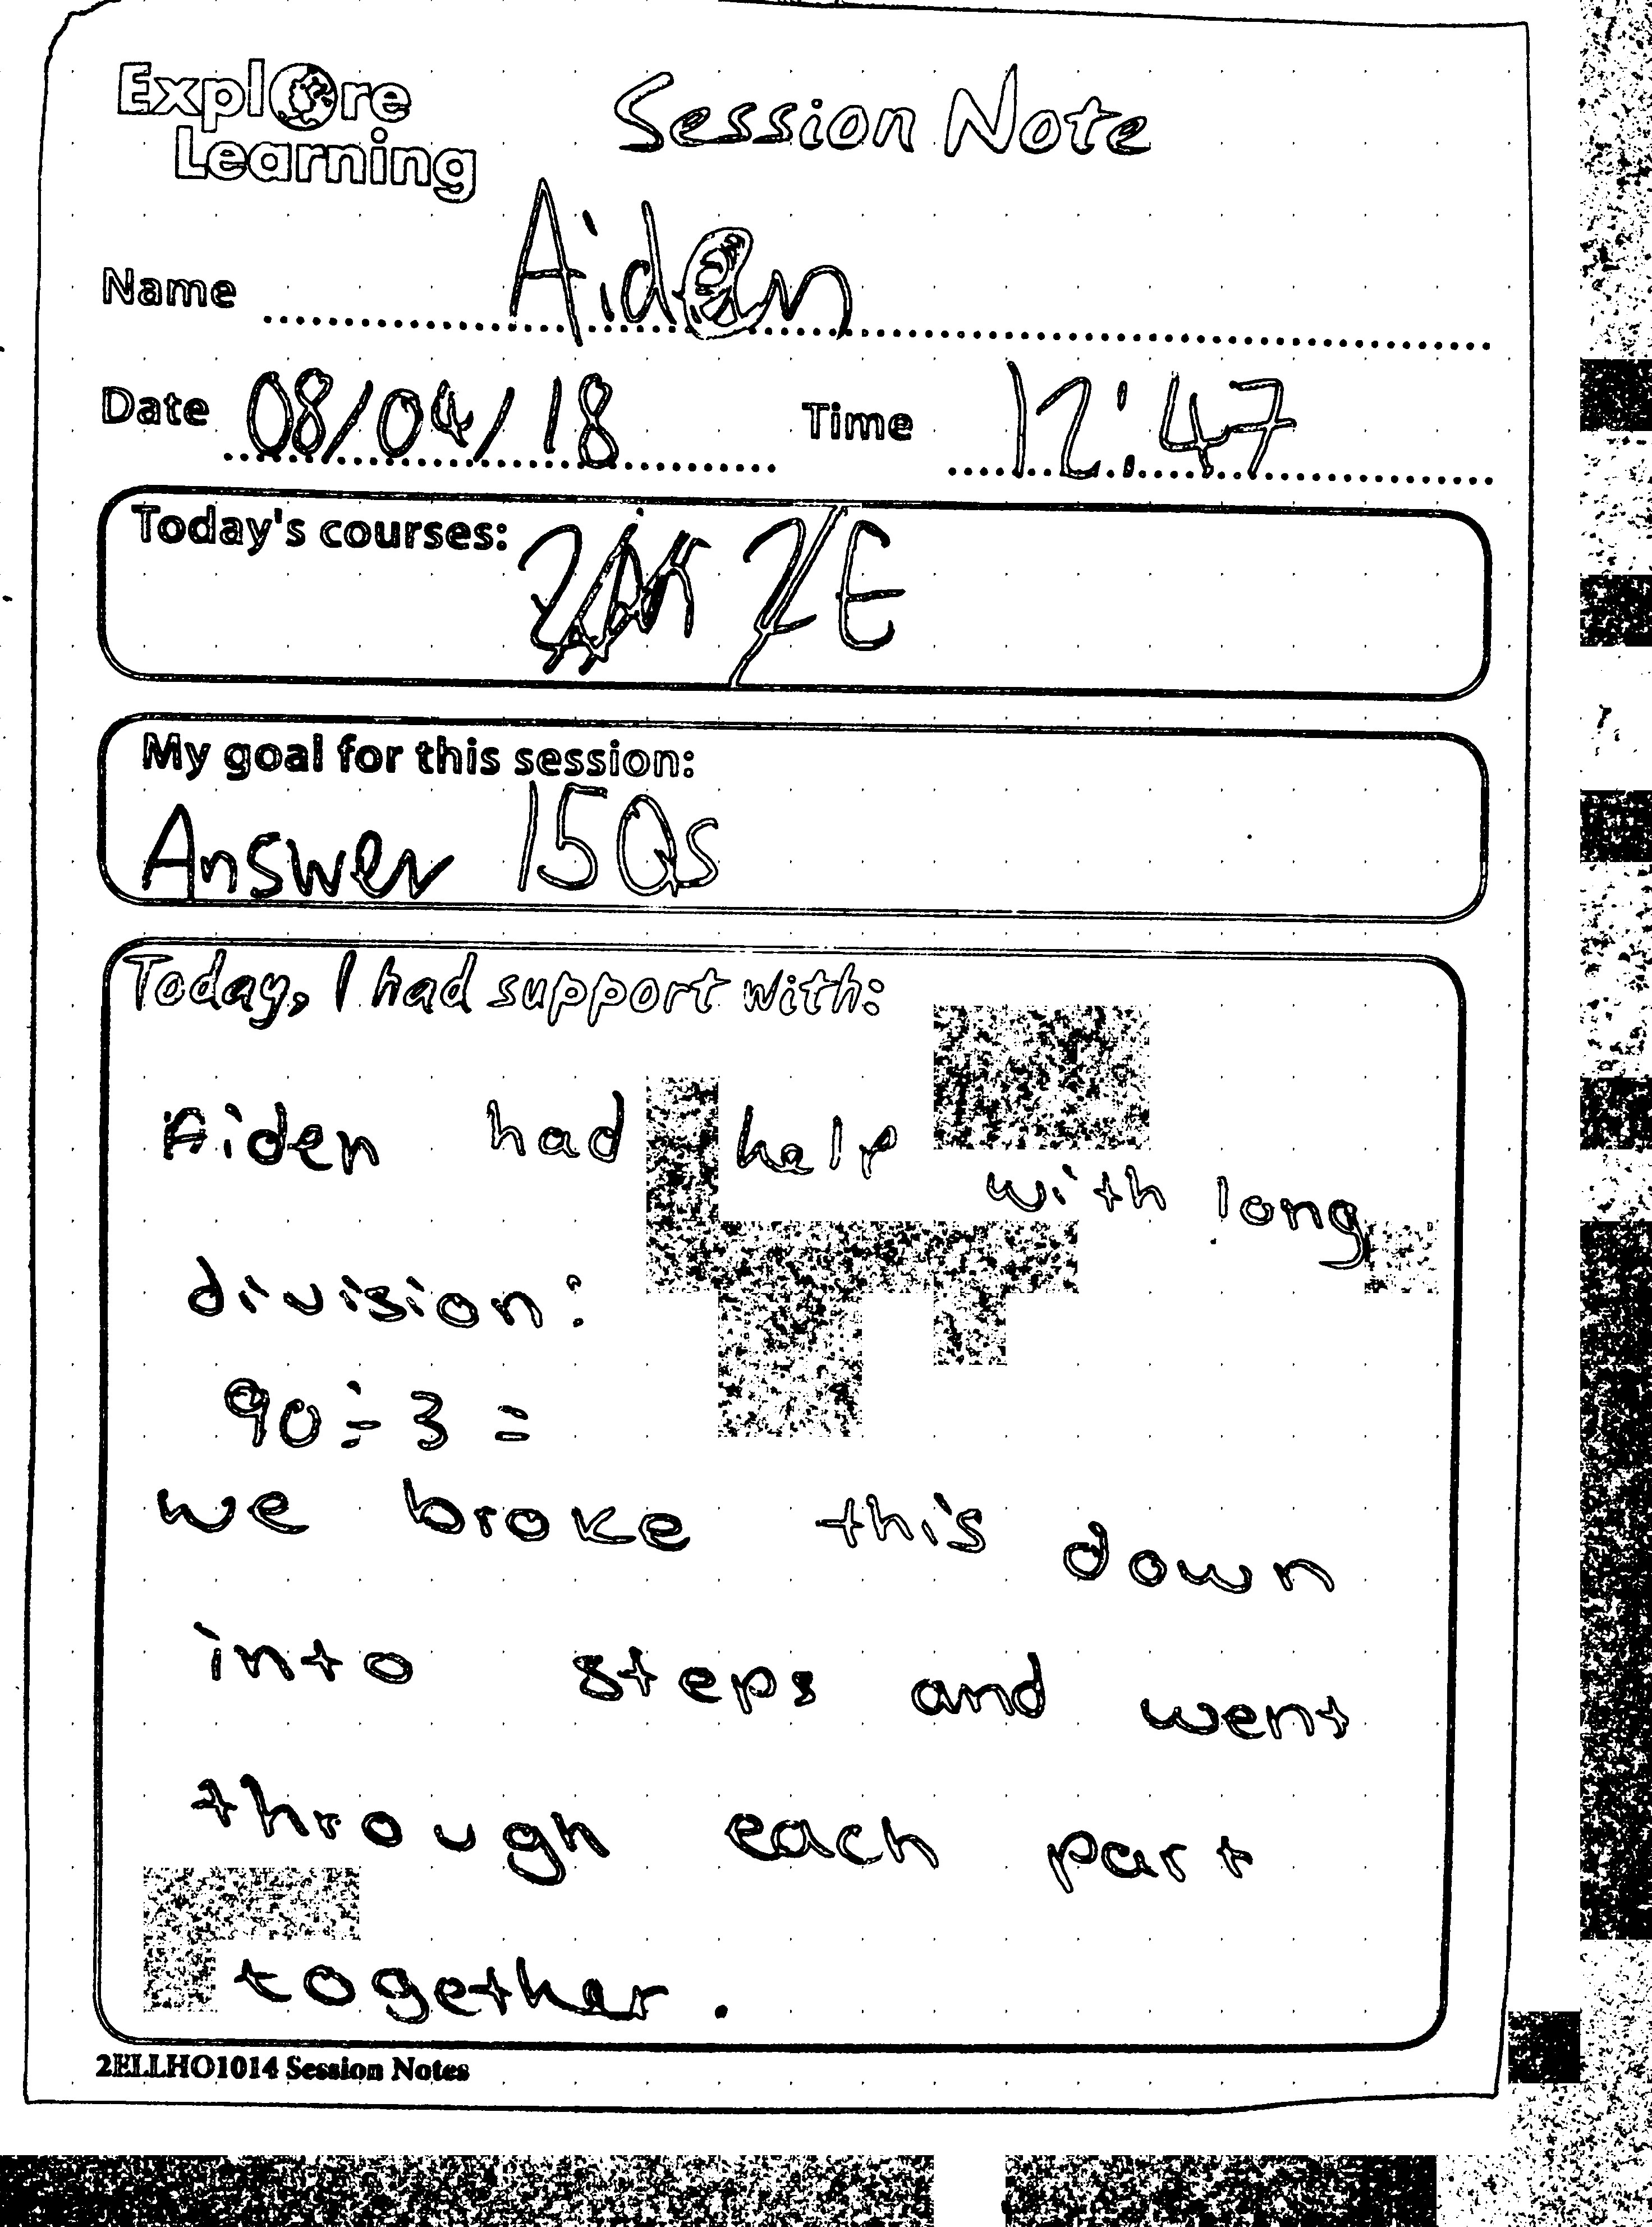 Explore
Learning
Session Note
Name Aiden
Date 08/04/18 Time 12:47
Today's courses: 2E
My goal for this session:
Answer 15Qs
Today, I had support with:
Aiden had help with long
division:
90÷3 =
we broke this down
into steps and went
through each part
together.
2ELLHO1014 Session Notes